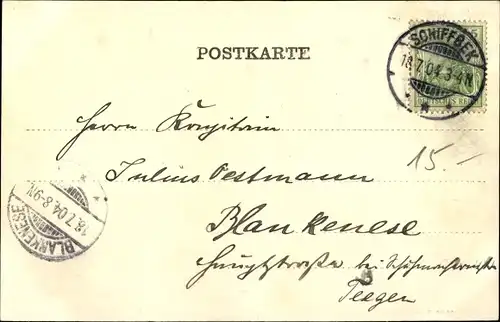 POSTKARTE
SCHIFFBEK
18.7.04.3-4N
Herrn Kapitain
Julius Oestmann
15.-
Blankenese
BLANKENESE
18.7.04.8-9N
Hauptstraße bei
Teegen